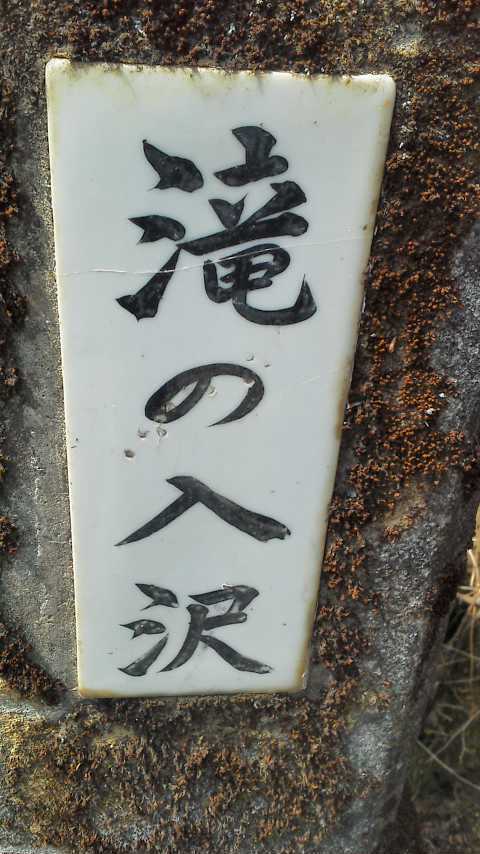 滝の入沢